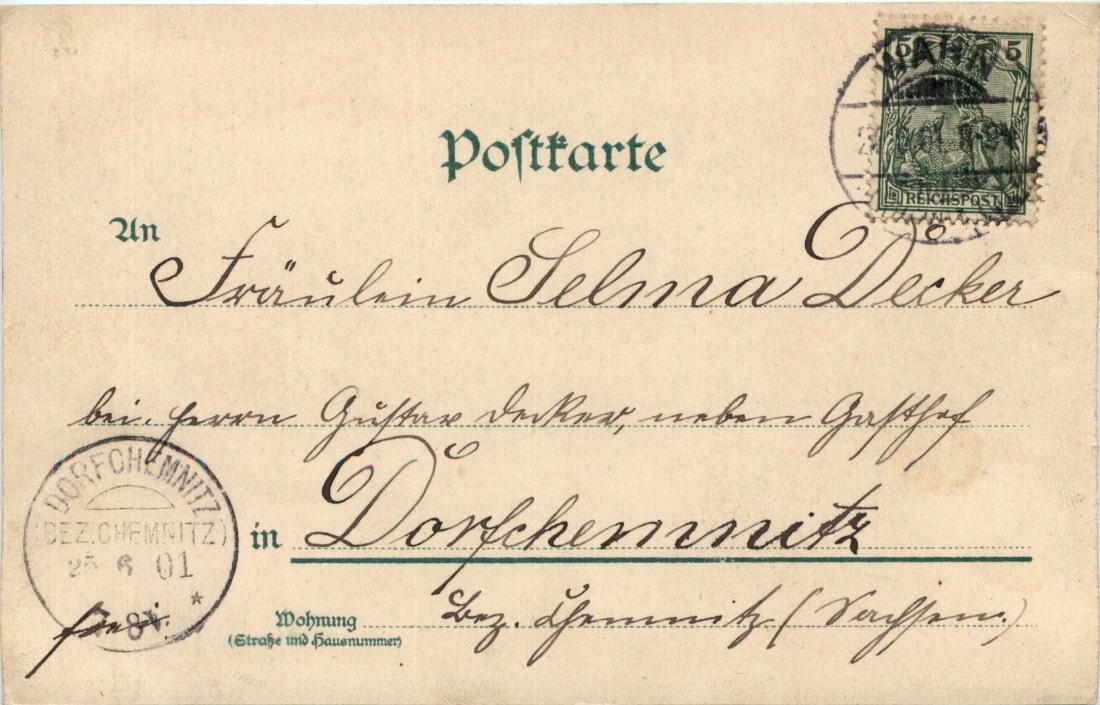 Postkarte
5 5
WAHN
REICHSPOST
An
Fräulein Selma Decker
bei Herrn Gustav Decker, neben Gasthof
in Dorfchemnitz
DORFCHEMNITZ
(BEZ.CHEMNITZ)
25 6 01
8V.
Wohnung
(Straße und Hausnummer)
Bez. Chemnitz (Sachsen.)
frei.